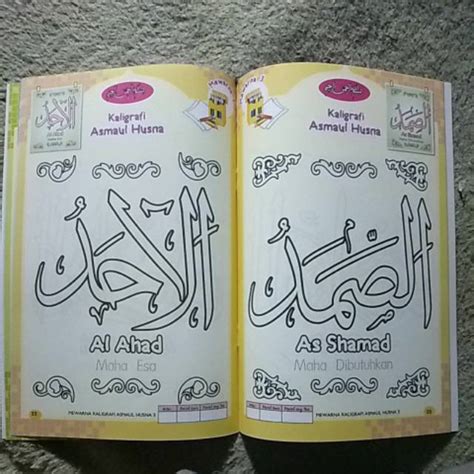 Kaligrafi
Asmaul Husna
الأحد
Al Ahad
Maha Esa
MEWARNA KALIGRAFI ASMAUL HUSNA 3
Kaligrafi
Asmaul Husna
الصَّمَدُ
As Shamad
Maha Dibutuhkan
MEWARNA KALIGRAFI ASMAUL HUSNA 3